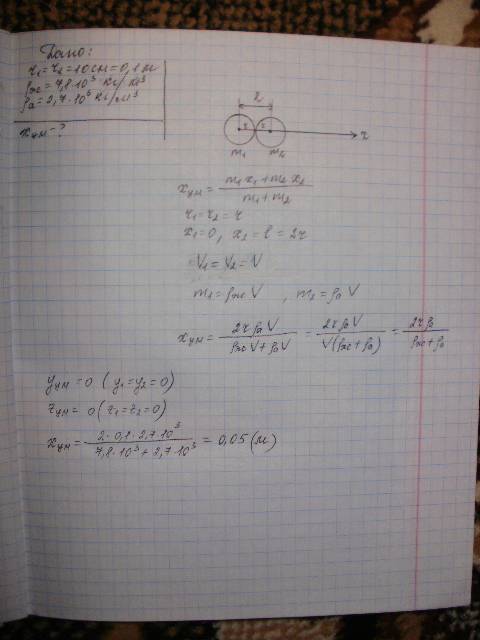 Дано:
r₁ = r₂ = 10 см = 0,1 м
ρж = 7,8·10³ кг/м³
ρа = 2,7·10³ кг/м³
xцм - ?
l
r r
x
m₁ m₂
xцм = (m₁x₁ + m₂x₂)/(m₁ + m₂)
r₁ = r₂ = r
x₁ = 0, x₂ = l = 2r
V₁ = V₂ = V
m₁ = ρж V, m₂ = ρа V
xцм = 2rρаV/(ρжV + ρаV) = 2rρаV/(V(ρж + ρа)) = 2rρа/(ρж + ρа)
yцм = 0 (y₁ = y₂ = 0)
zцм = 0 (z₁ = z₂ = 0)
xцм = (2·0,1·2,7·10³)/(7,8·10³ + 2,7·10³) = 0,05 (м)